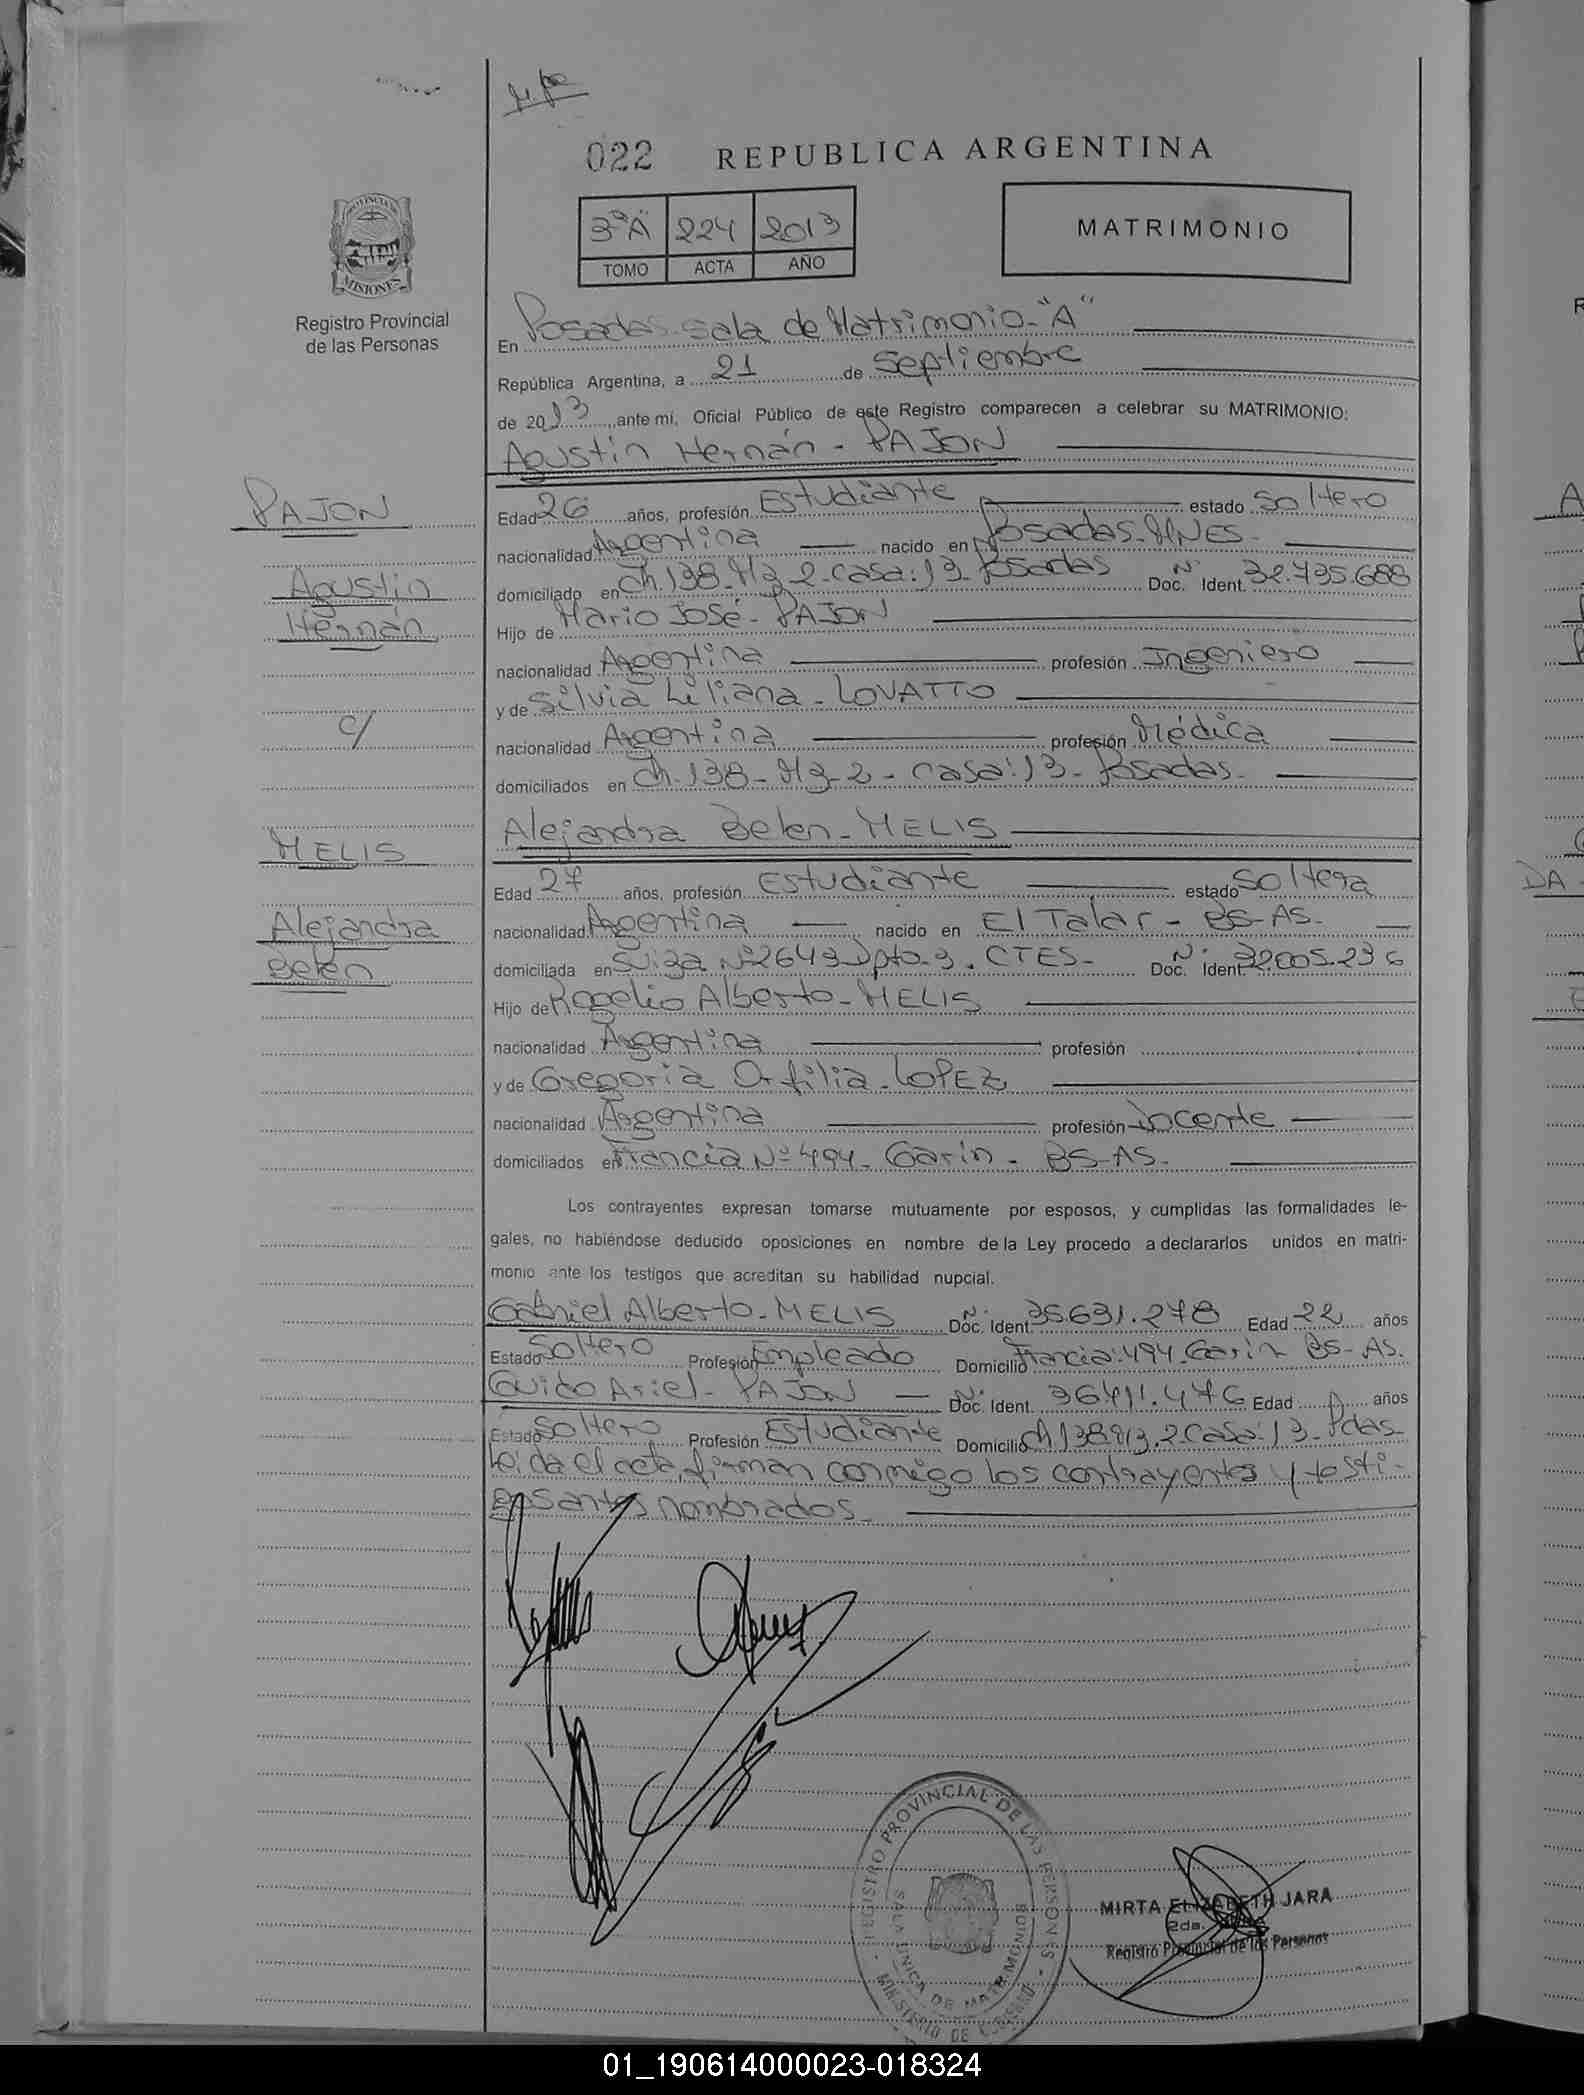 022 REPUBLICA ARGENTINA
3º "A" 224 2013
TOMO ACTA AÑO
MATRIMONIO
PROVINCIA DE MISIONES
Registro Provincial
de las Personas
En Posadas sala de Matrimonio "A"
República Argentina, a 21 de Septiembre
de 2013, ante mí, Oficial Público de este Registro comparecen a celebrar su MATRIMONIO:
Agustín Hernán - PAJON
PAJON
Agustín
Hernán
c/
MELIS
Alejandra
Belen
Edad 26 años, profesión Estudiante estado Soltero
nacionalidad Argentina nacido en Posadas-MNES-
domiciliado en Ch.138-Mz 2-casa:13-Posadas Doc. Nº Ident. 32.735.688
Hijo de Mario José - PAJON
nacionalidad Argentina profesión Ingeniero
y de Silvia Liliana - LOVATTO
nacionalidad Argentina profesión Médica
domiciliados en Ch.138-Mz-2-casa:13-Posadas-
Alejandra Belen - MELIS
Edad 27 años, profesión Estudiante estado Soltera
nacionalidad Argentina nacido en El Talar - BS-AS-
domiciliada en Suiza Nº2649 Dpto-3. CTES- Doc. Nº Ident. 32.005.236
Hijo de Rogelio Alberto - MELIS
nacionalidad Argentina profesión
y de Gregoria Orfilia - LOPEZ
nacionalidad Argentina profesión Docente
domiciliados en Francia Nº 494-Garin - BS-AS-
Los contrayentes expresan tomarse mutuamente por esposos, y cumplidas las formalidades le-
gales, no habiéndose deducido oposiciones en nombre de la Ley procedo a declararlos unidos en matri-
monio ante los testigos que acreditan su habilidad nupcial.
Gabriel Alberto - MELIS Doc. Nº Ident. 35.631.278 Edad 22 años
Estado Soltero Profesión Empleado Domicilio Francia:494-Garin BS-AS.
Guido Ariel - PAJON Doc. Nº Ident. 36.411.476 Edad años
Estado Soltero Profesión Estudiante Domicilio Ch 138 Mz.2 Casa:13-Pdas-
Leida el acta, firman conmigo los contrayentes y testi-
gos antes nombrados.
REGISTRO PROVINCIAL DE LAS PERSONAS
SALA UNICA DE MATRIMONIOS
MINISTERIO DE GOBIERNO
MIRTA ELIZABETH JARA
2da.
Registro Provincial de las Personas
01_190614000023-018324